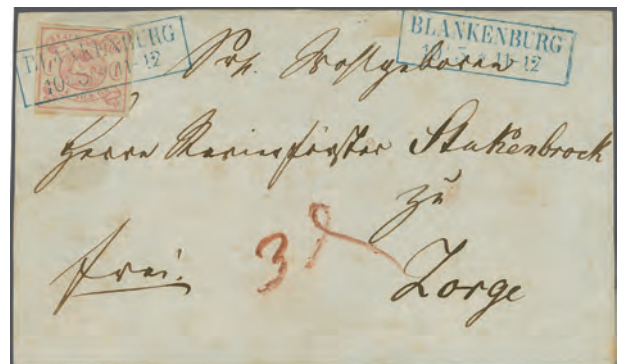 BLANKENBURG
10 5 11-12
BLANKENBURG
11-12
Sr. Wohlgeboren
Herrn Revierförster Stakenbrock
zu
frei. 3
Zorge